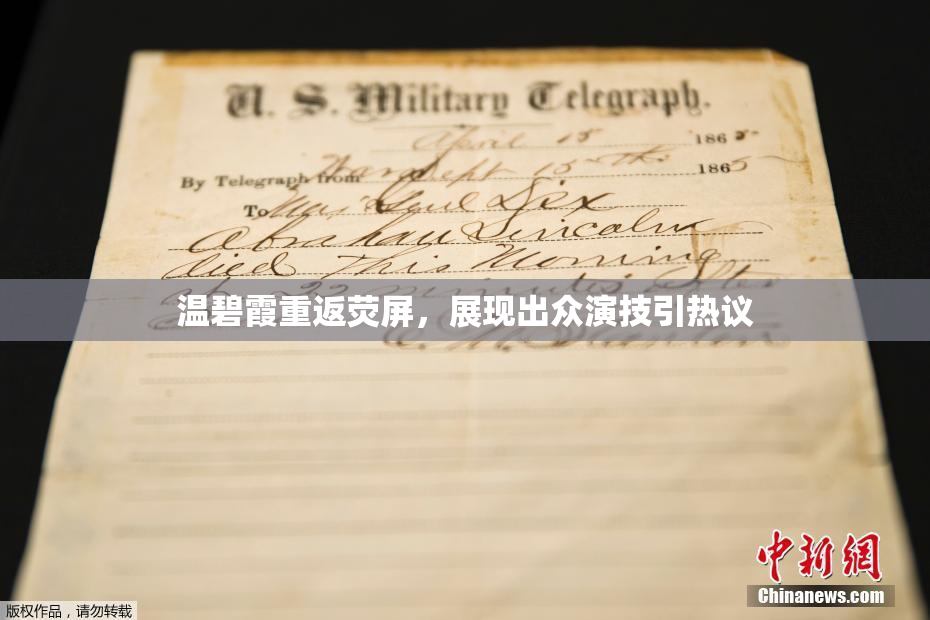 U. S. Military Telegraph.
April 15 1865
By Telegraph from War Dept 15th 1865
To Maj Genl Dix
Abraham Lincoln
died This Morning
at 22 minutes after
温碧霞重返荧屏，展现出众演技引热议
E. M. Stanton
中新网
Chinanews.com
版权作品，请勿转载